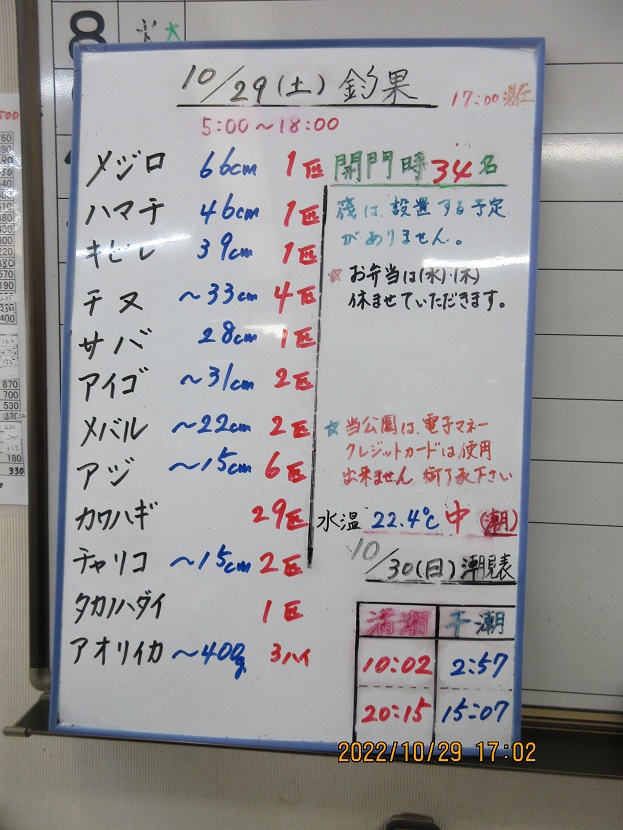 10/29(土) 釣果
17:00現在
5:00~18:00
メジロ 66cm 1匹
ハマチ 46cm 1匹
キビレ 39cm 1匹
チヌ ~33cm 4匹
サバ 28cm 1匹
アイゴ ~31cm 2匹
メバル ~22cm 2匹
アジ ~15cm 6匹
カワハギ 29匹
チャリコ ~15cm 2匹
タカノハダイ 1匹
アオリイカ ~400g 3ハイ
開門時34名
筏は、設置する予定
がありません。
☆お弁当は(水)・(木)
休ませていただきます。
☆当公園は、電子マネー
クレジットカードは使用
出来ません 御了承下さい
水温 22.4℃ 中(潮)
10/30(日)潮見表
満潮 干潮
10:02 2:57
20:15 15:07
2022/10/29 17:02
8
870
700
530
180
330